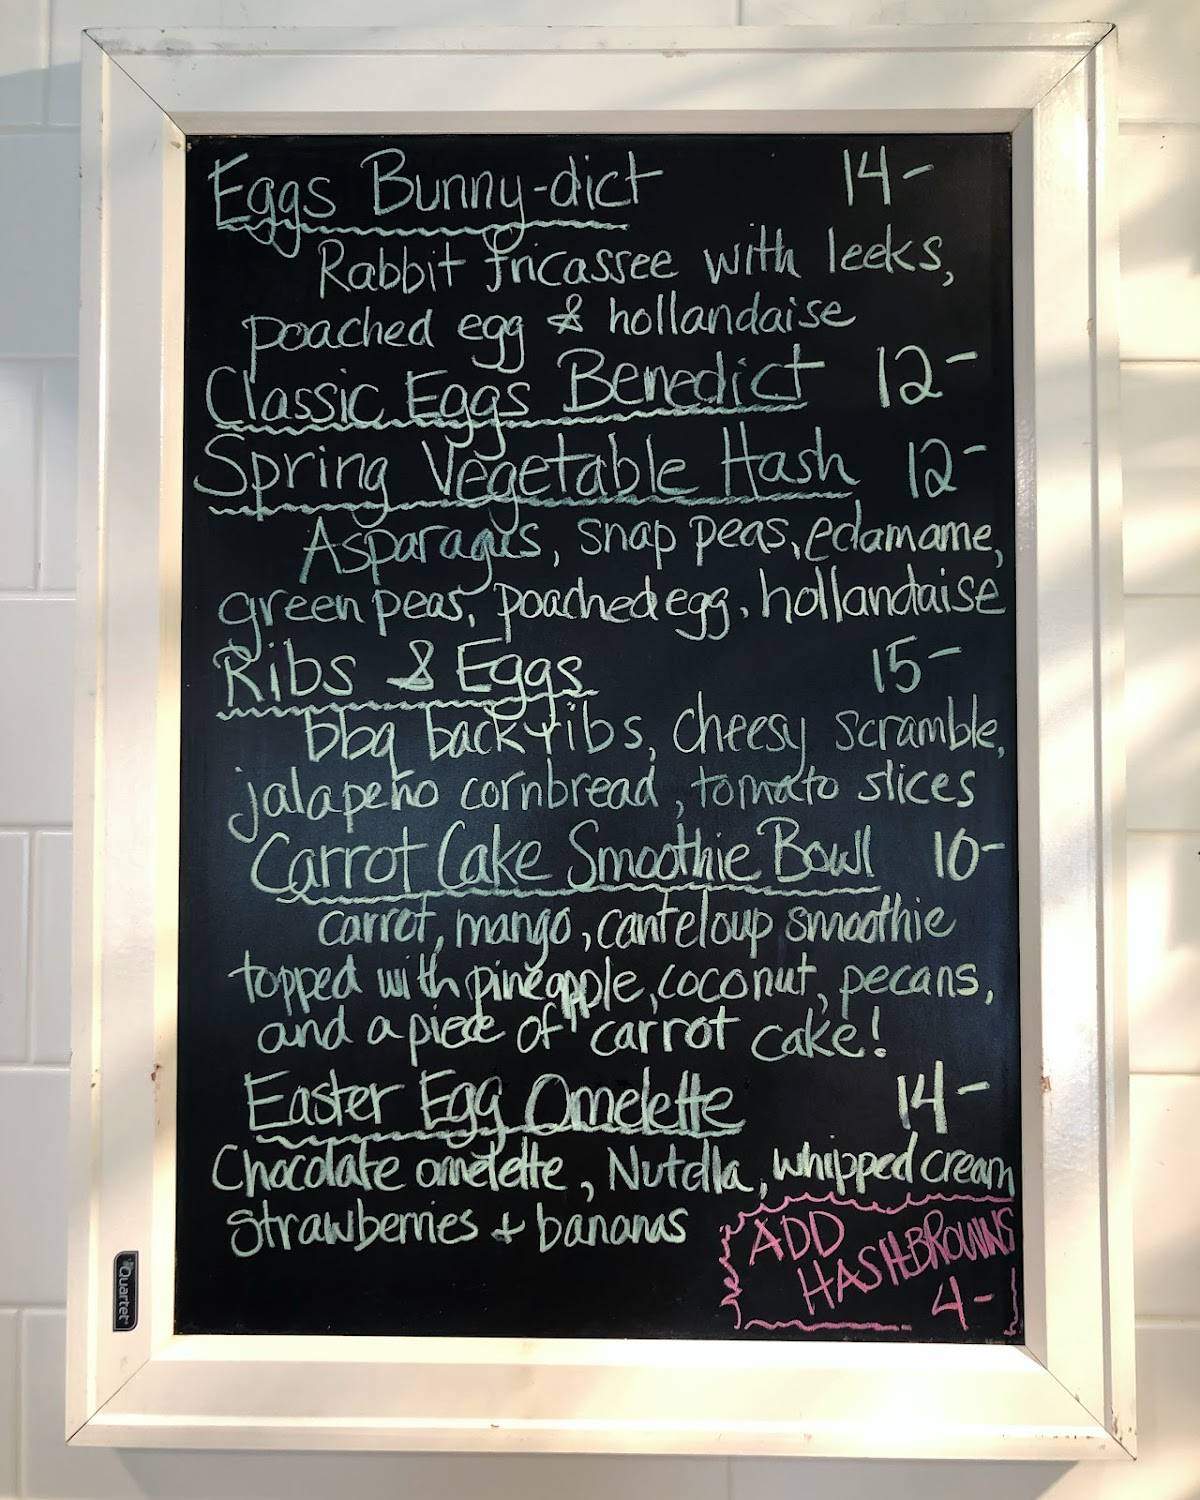 Eggs Bunny-dict 14-
Rabbit fricassee with leeks,
poached egg & hollandaise
Classic Eggs Benedict 12-
Spring Vegetable Hash 12-
Asparagus, snap peas, edamame,
green peas, poached egg, hollandaise
Ribs & Eggs 15-
bbq back ribs, cheesy scramble,
jalapeño cornbread, tomato slices
Carrot Cake Smoothie Bowl 10-
carrot, mango, canteloup smoothie
topped with pineapple, coconut, pecans,
and a piece of carrot cake!
Easter Egg Omelette 14-
Chocolate omelette, Nutella, whipped cream
strawberries + bananas
ADD
HASHBROWNS
4-
Quartet